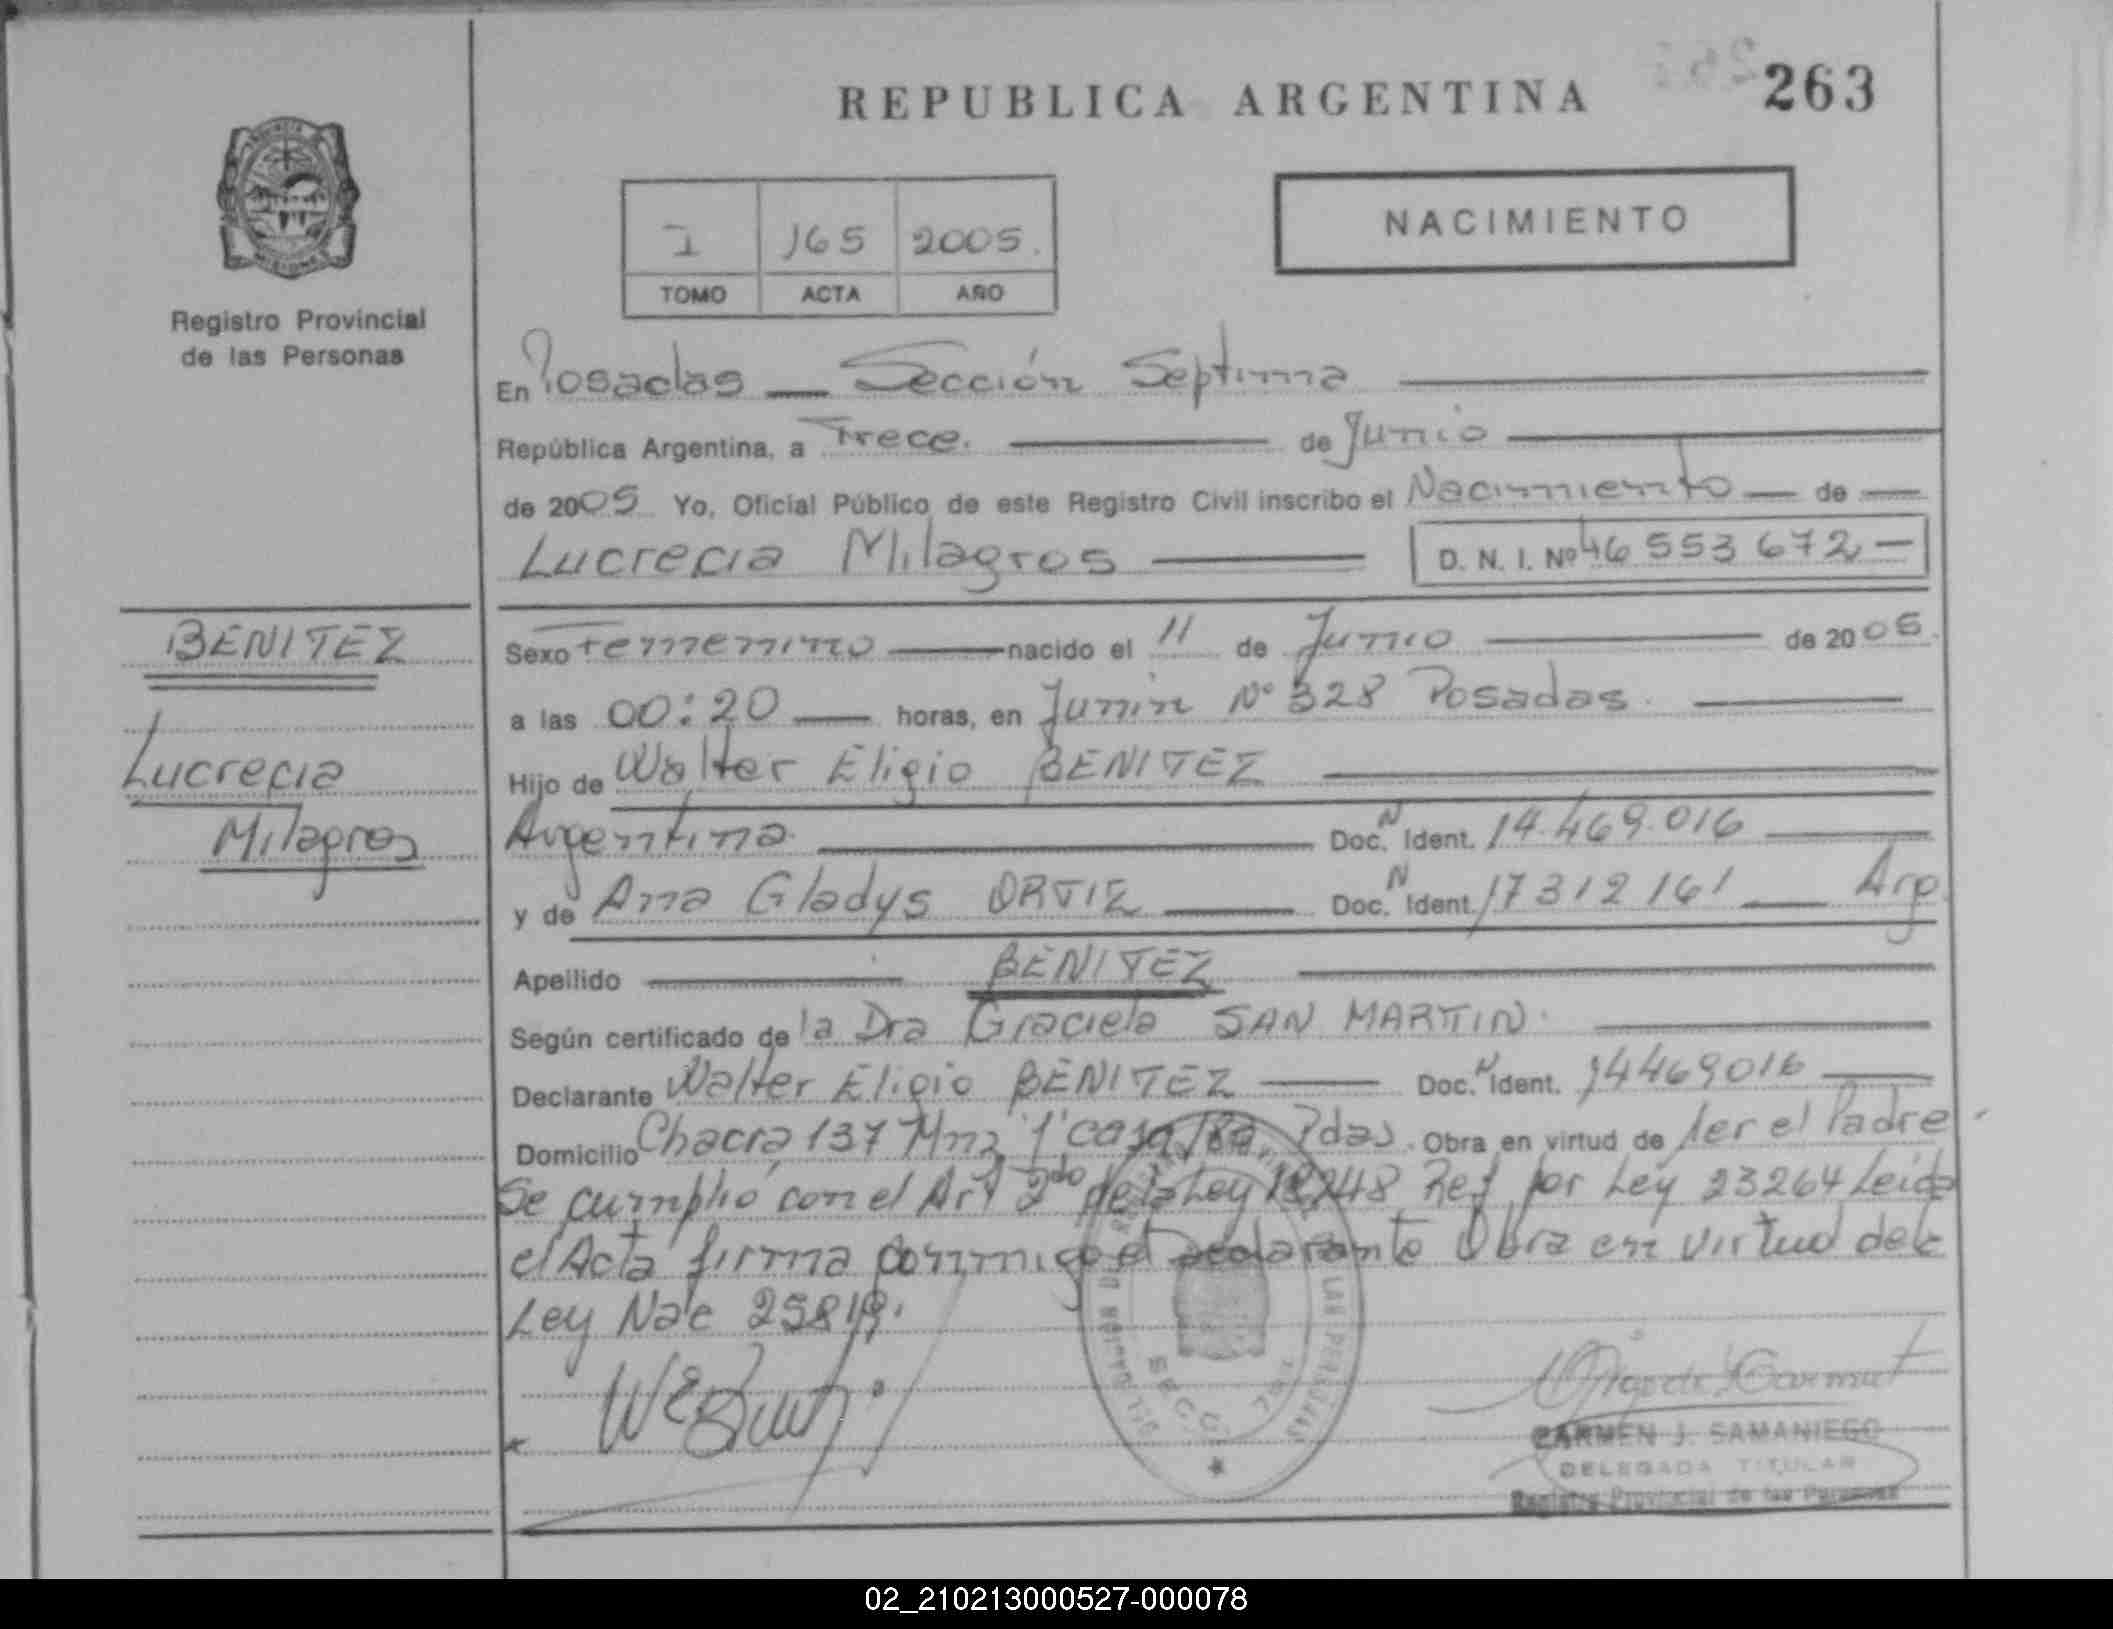 REPUBLICA ARGENTINA 263
NACIMIENTO
I 165 2005.
TOMO ACTA AÑO
Registro Provincial
de las Personas
En Posadas — Sección Septima
República Argentina, a Trece. de Junio
de 2005 Yo, Oficial Público de este Registro Civil inscribo el Nacimiento de
Lucrecia Milagros D. N. I. Nº 46 553 672
BENITEZ
Lucrecia
Milagros
Sexo Femenino nacido el 11 de Junio de 2005.
a las 00:20 horas, en Junin Nº 328 Posadas.
Hijo de Walter Eligio BENITEZ
Argentina. Doc. N Ident. 14.469.016
y de Ana Gladys ORTIZ Doc. N Ident. 17312161 Arg.
Apellido BENITEZ
Según certificado de la Dra Graciela SAN MARTIN.
Declarante Walter Eligio BENITEZ Doc. N Ident. 14469016
Domicilio Chacra 137 Mna casa Pdas. Obra en virtud de ser el Padre.
Se cumplió con el Art 2do de la Ley 18248 Ref por Ley 23264 Leida
el Acta firma conmigo el declarante Obra en virtud de la
Ley Nac 25819.
CARMEN J. SAMANIEGO
DELEGADA TITULAR
Registro Provincial de las Personas
02_210213000527-000078